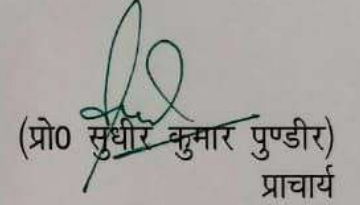 (प्रो0 सुधीर कुमार पुण्डीर)
प्राचार्य